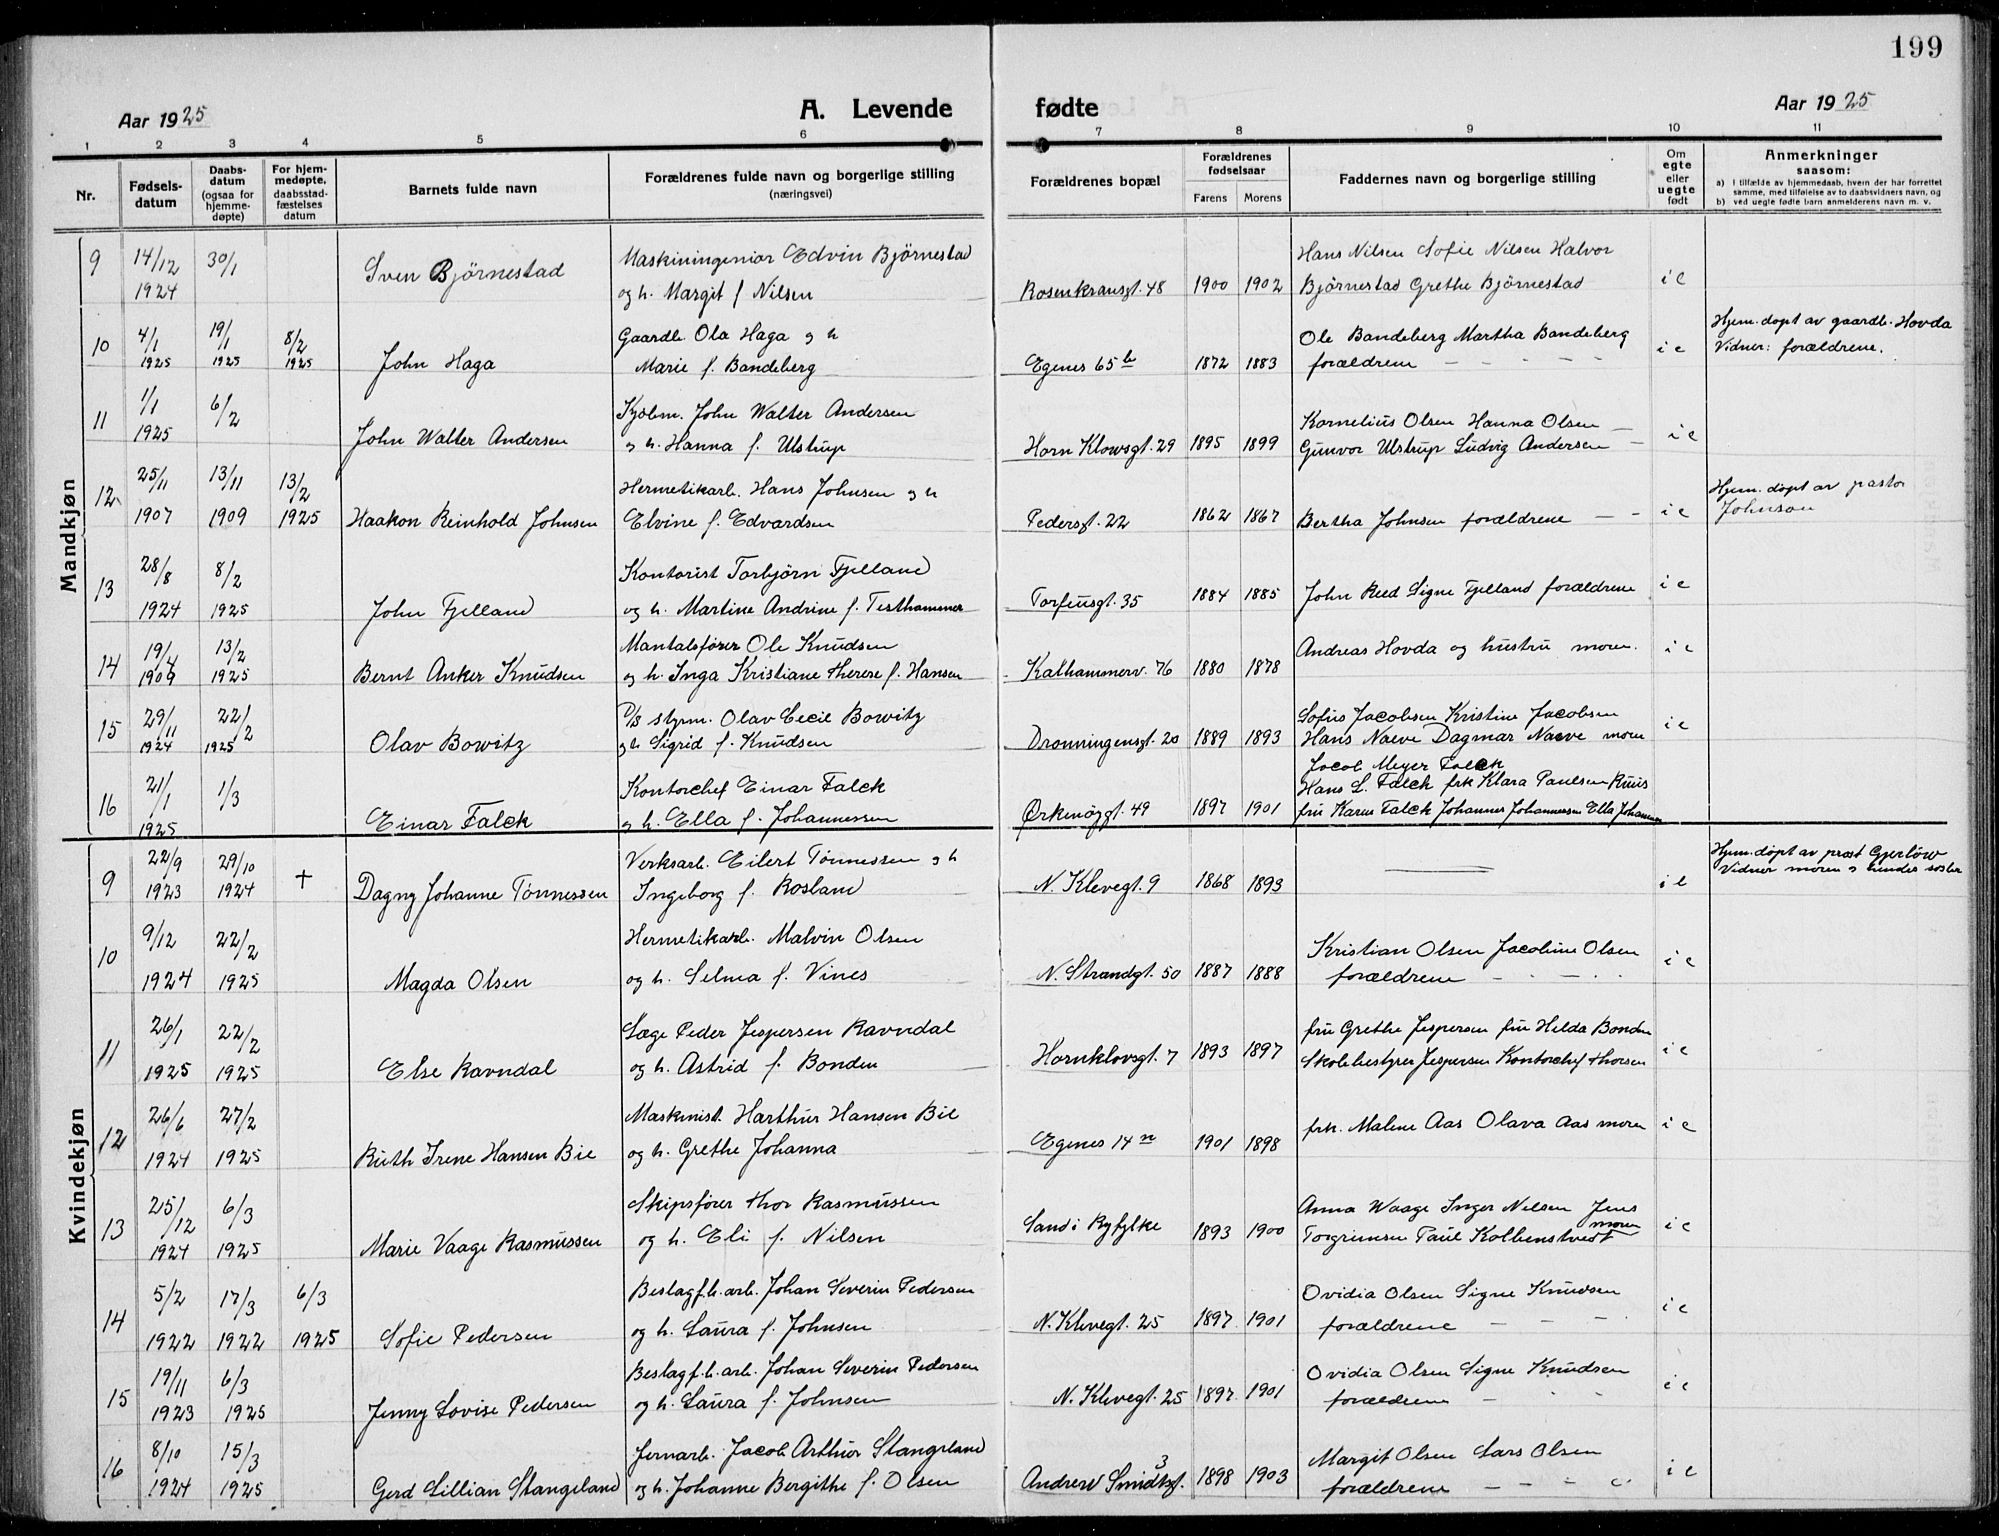 199
Aar 1925 A. Levende fødte Aar 1925
1 2 3 4 5 6 7 8 9 10 11
Nr. Fødsels-datum Daabs-datum (ogsaa for hjemme-døpte) For hjem-medøpte, daabsstad-fæstelses datum Barnets fulde navn Forældrenes fulde navn og borgerlige stilling (næringsvei) Forældrenes bopæl Forældrenes fødselsaar Farens Morens Faddernes navn og borgerlige stilling Om egte eller uegte født Anmerkninger saasom:
a) I tilfælde av hjemmedaab, hvem der har forrettet samme, med tilføielse av to daabsvidners navn, og
b) ved uegte fødte barn anmelderens navn m. v.
Mandkjøn
9 14/12 30/1 Maskiningeniør Edvin Bjørnestad Hans Nilsen Sofie Nilsen Halvor
1924 Sven Bjørnestad og h. Margit f. Nilsen Rosenkransgt. 48 1900 1902 Bjørnestad Grethe Bjørnestad i e
10 4/1 19/1 8/2 Gaardb. Ola Haga og h Ole Bandeberg Martha Bandeberg Hjem. døpt av gaardb. Hovda
1925 1925 1925 John Haga Marie f. Bandeberg Egenes 65 b 1872 1883 forældrene – – – – i e Vidner: forældrene.
11 1/1 6/2 Kjøbm. John Walter Andersen Kornelius Olsen Hanna Olsen –
1925 John Walter Andersen og h. Hanna f. Ulstrup Horn Klowsgt. 29 1895 1899 Gunvor Ulstrup Ludvig Andersen – i e
12 25/11 13/11 13/2 Hermetikarb. Hans Johnsen og h Hjem. døpt av pastor
1907 1909 1925 Haakon Reinhold Johnsen Elvine f. Edvardsen Pedersgt. 22 1862 1867 Bertha Johnsen forældrene – – i e Johnson
13 28/8 8/2 Kontorist Torbjørn Fjelland
1924 1925 John Fjelland og h. Martine Andrine f. Testhammer Torfeusgt. 35 1884 1885 John Reed Signe Fjelland forældrene i e
14 19/4 13/2 Mantalsfører Ole Knudsen Andreas Hovda og hustru moren. i e
1909 1925 Bernt Anker Knudsen og h. Inga Kristiane Therese f. Hansen Kalhammerv. 76 1880 1878
15 29/11 22/2 D/S styrm. Olav Cecil Bowitz Sofus Jacobsen Kristine Jacobsen i e
1924 1925 Olav Bowitz og h Sigrid f. Knudsen Dronningensgt. 20 1889 1893 Hans Naeve Dagmar Naeve moren
Jacob Meyer Falck
16 21/1 1/3 Kontorchef Einar Falck Hans L. Falck frk Klara Paulsen Ruus
1925 Einar Falck og h. Ella f. Johannessen Ørkenøygt. 49 1897 1901 fru Karen Falck Johannes Johannessen Ella Johannes
Kvindekjøn
9 22/9 29/10 Verksarb. Eilert Tønnessen og h Hjem. døpt av prost Gjerløw
1923 1924 + Dagny Johanne Tønnessen Ingeborg f. Rosland N. Klevegt. 9 1868 1893 — i e Vidner moren og hendes søster
10 9/12 22/2 Hermetikarb. Malvin Olsen Kristian Olsen Jacobine Olsen i e
1924 1925 Magda Olsen og h. Selma f. Vines N. Strandgt. 50 1887 1888 forældrene – – –
11 26/1 22/2 Læge Peder Jespersen Ravndal fru Grethe Jespersen fru Helda Bonden
1925 1925 Else Ravndal og h. Astrid f. Bonden Hornklovsgt. 7 1893 1897 Skolebestyrer Jespersen Kontorchef Thorsen i e
12 26/6 27/2 Maskinist. Harthur Hansen Bie frk. Malene Aas Olava Aas moren i e
1924 1925 Ruth Irene Hansen Bie og h. Grethe Johanna Egenes 14 n 1901 1898
13 25/12 6/3 Skipsfører Thor Rasmussen Anna Waage Inger Nilsen Jens
1924 1925 Marie Vaage Rasmussen og h. Eli f. Nilsen Sand i Ryfylke 1893 1900 Torgrimsen Paul Kolbenstvedt moren i e
14 5/2 17/3 6/3 Beslagf.b. arb. Johan Severin Pedersen Ovidia Olsen Signe Knudsen i e
1922 1922 1925 Sofie Pedersen og h. Laura f. Johnsen N. Klevegt. 25 1897 1901 forældrene – – –
15 19/11 6/3 Beslagf.b. arb. Johan Severin Pedersen Ovidia Olsen Signe Knudsen i e
1923 1925 Jenny Lovise Pedersen og h. Laura f. Johnsen N. Klevegt. 25 1897 1901 forældrene –
16 8/10 15/3 Jernarb. Jacob Arthur Stangeland Margit Olsen Lars Olsen
1924 1925 Gerd Lillian Stangeland og h. Johanne Bergithe f. Olsen Andrew Smidtsgt. 3 1898 1903 forældrene – – – i e